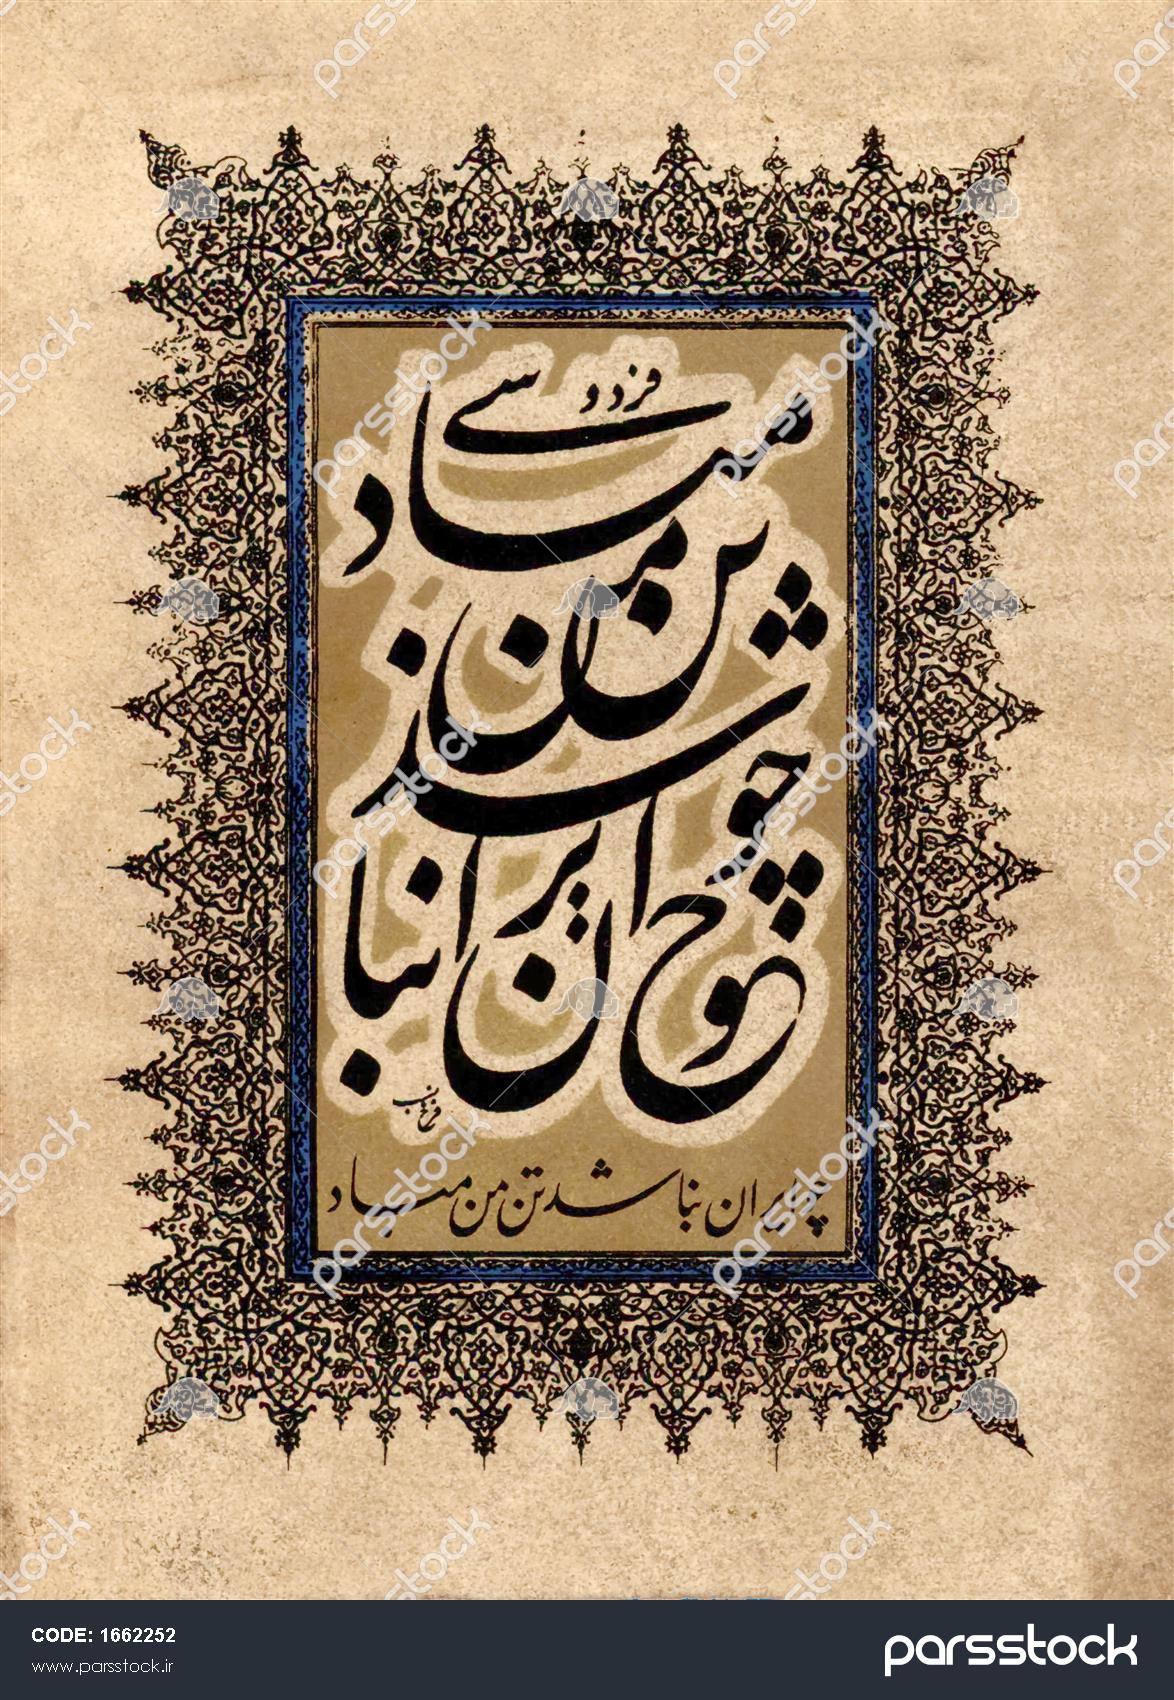 فردوسی
چو ایران نباشد تن من مباد
چو ایران نباشد تن من مباد
CODE: 1662252
www.parsstock.ir
parsstock